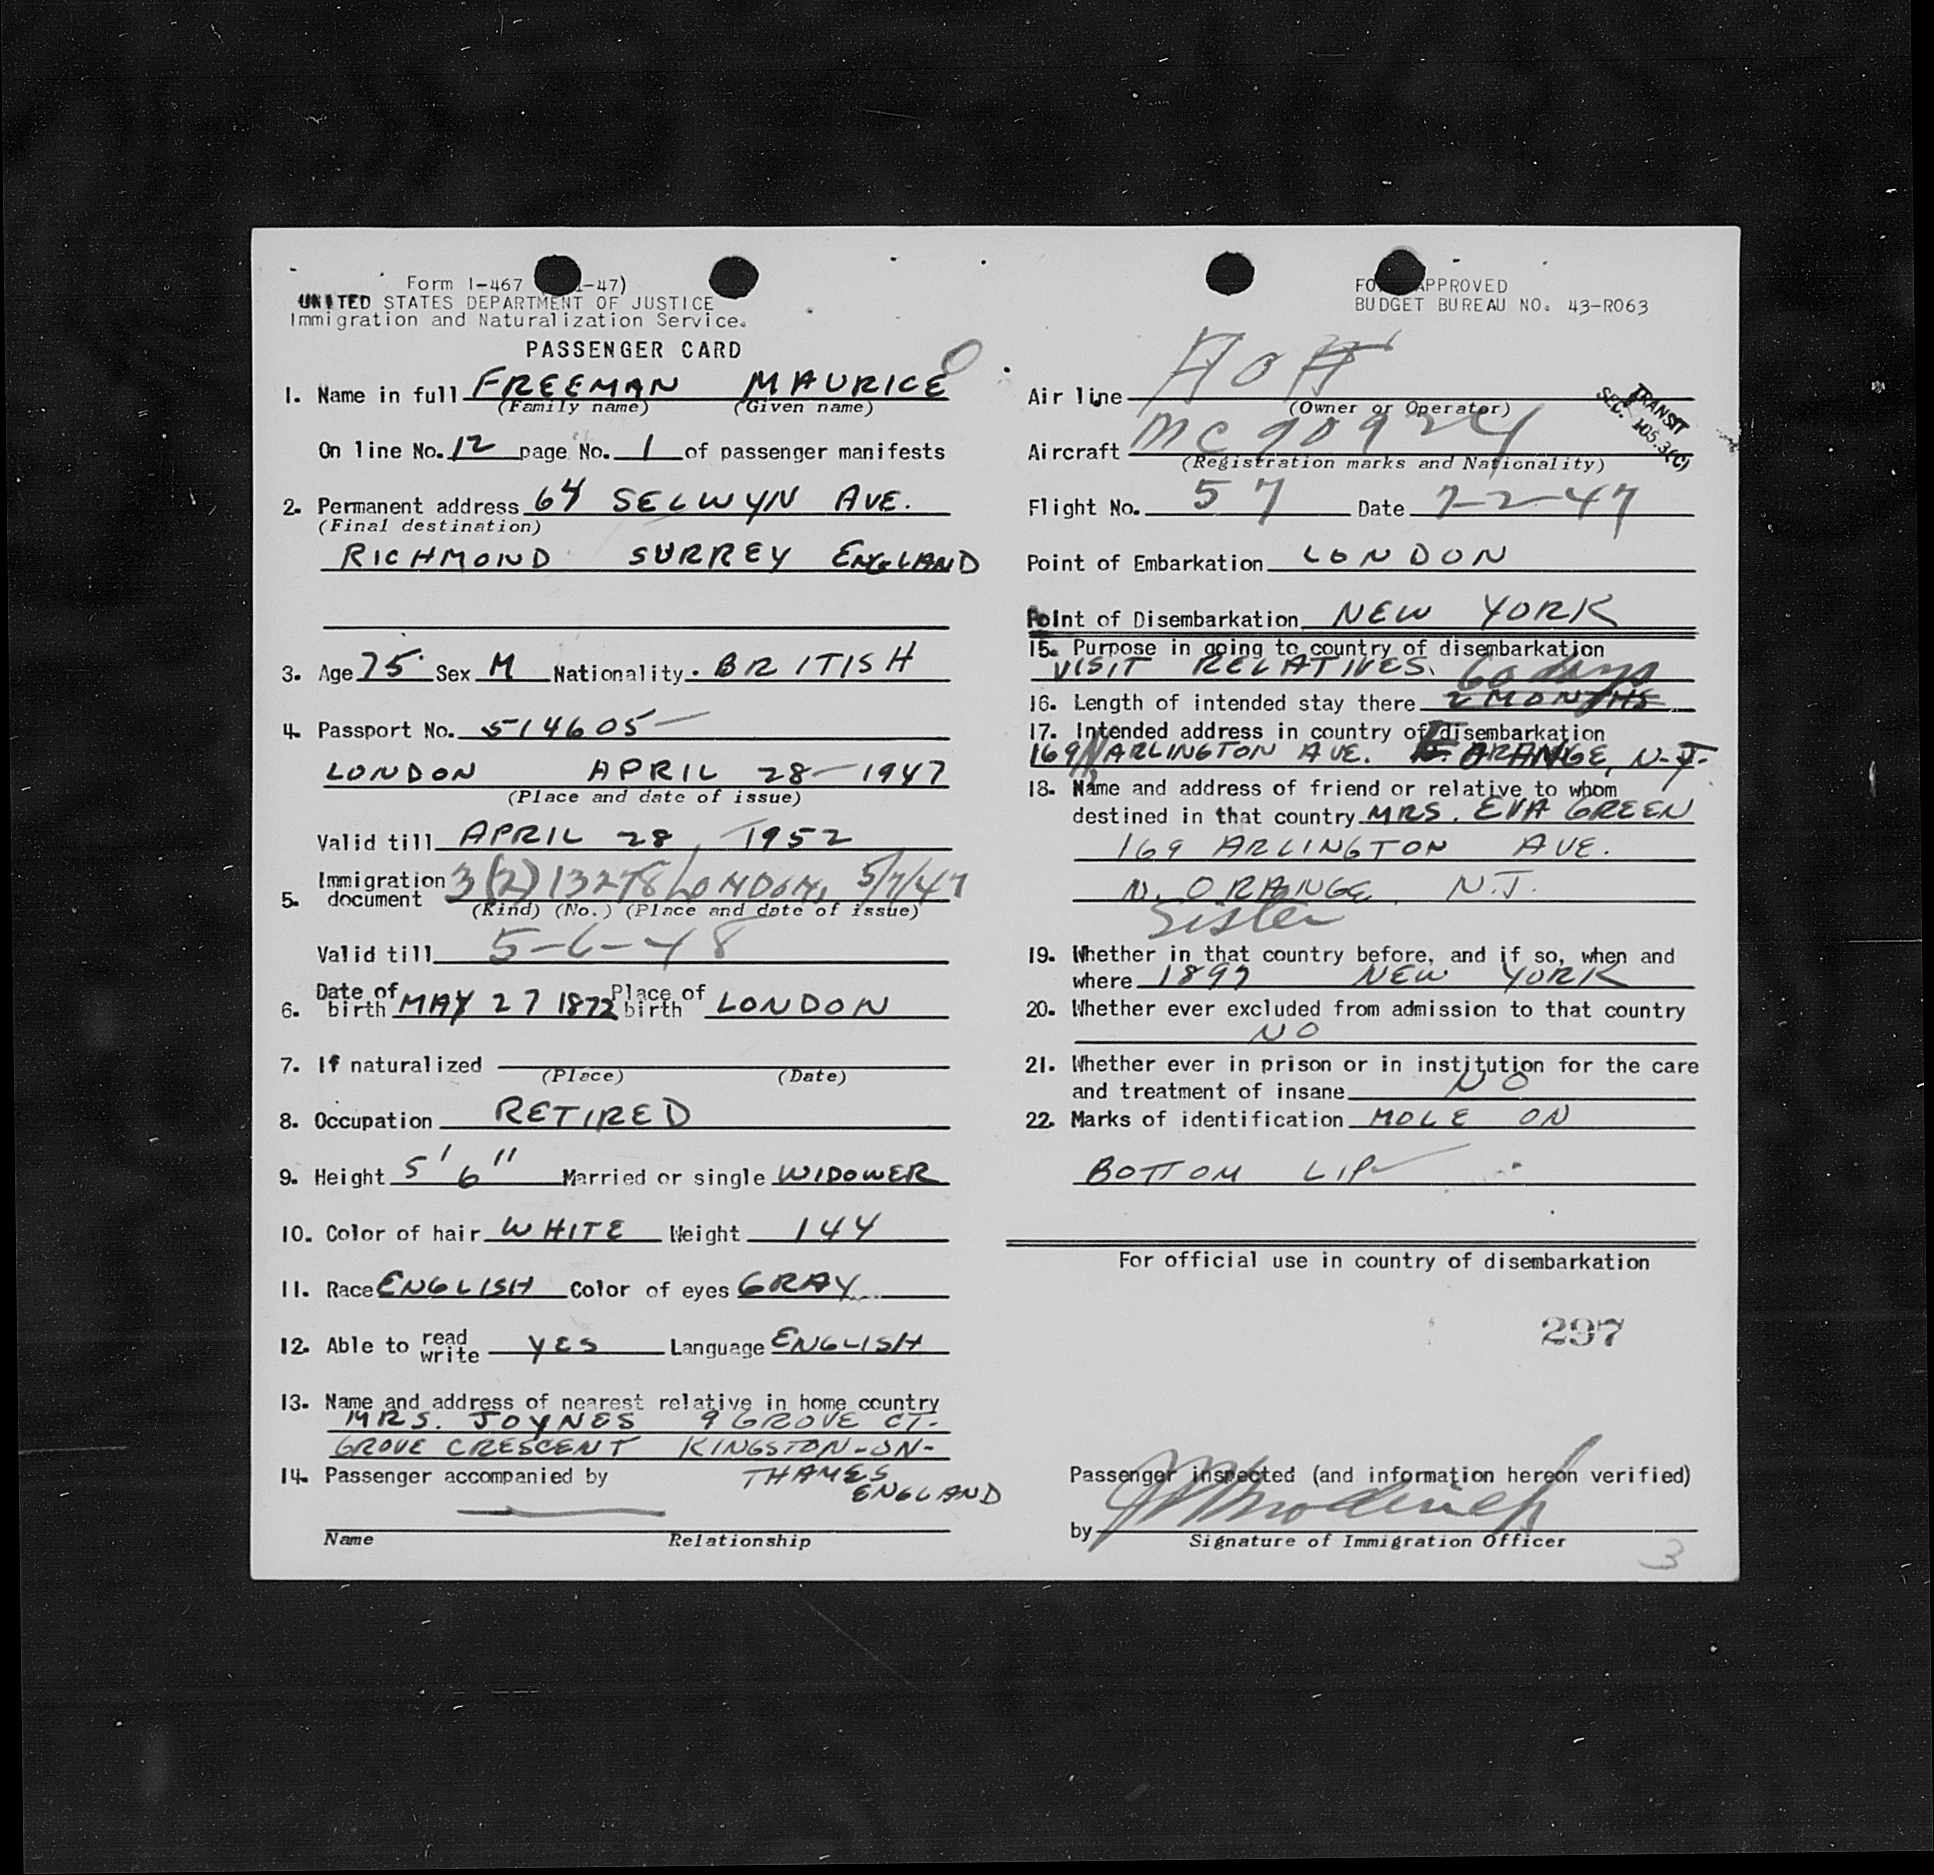 Form I-467 -47)
UNITED STATES DEPARTMENT OF JUSTICE
Immigration and Naturalization Service.
PASSENGER CARD
1. Name in full FREEMAN MAURICE
(Family name) (Given name)
On line No. 12 page No. 1 of passenger manifests
2. Permanent address 64 SELWYN AVE.
(Final destination)
RICHMOND SURREY ENGLAND
3. Age 75 Sex M Nationality. BRITISH
4. Passport No. 514605
LONDON APRIL 28 - 1947
(Place and date of issue)
Valid till APRIL 28, 1952
5. Immigration document 3(2) 13278 LONDON, 5/7/47
(Kind) (No.) (Place and date of issue)
Valid till 5-6-48
6. Date of birth MAY 27 1872 Place of birth LONDON
7. If naturalized
(Place) (Date)
8. Occupation RETIRED
9. Height 5' 6" Married or single WIDOWER
10. Color of hair WHITE Weight 144
11. Race ENGLISH Color of eyes GRAY
12. Able to read write YES Language ENGLISH
13. Name and address of nearest relative in home country
MRS. JOYNES 9 GROVE CT.
GROVE CRESCENT KINGSTON-ON-
THAMES
ENGLAND
14. Passenger accompanied by
Name Relationship
APPROVED
BUDGET BUREAU NO. 43-R063
Air line AOA
(Owner or Operator)
TRANSIT
SEC. 105.3(C)
Aircraft NC 90924
(Registration marks and Nationality)
Flight No. 57 Date 7-2-47
Point of Embarkation LONDON
Point of Disembarkation NEW YORK
15. Purpose in going to country of disembarkation
VISIT RELATIVES.
60 days
16. Length of intended stay there 2 MONTHS
17. Intended address in country of disembarkation
169 N ARLINGTON AVE. E. ORANGE, N.J.
18. Name and address of friend or relative to whom
destined in that country MRS. EVA GREEN
169 ARLINGTON AVE.
N. ORANGE, N.J.
Sister
19. Whether in that country before, and if so, when and
where 1897 NEW YORK
20. Whether ever excluded from admission to that country
NO
21. Whether ever in prison or in institution for the care
and treatment of insane NO
22. Marks of identification MOLE ON
BOTTOM LIP
For official use in country of disembarkation
297
Passenger inspected (and information hereon verified)
by
Signature of Immigration Officer
3